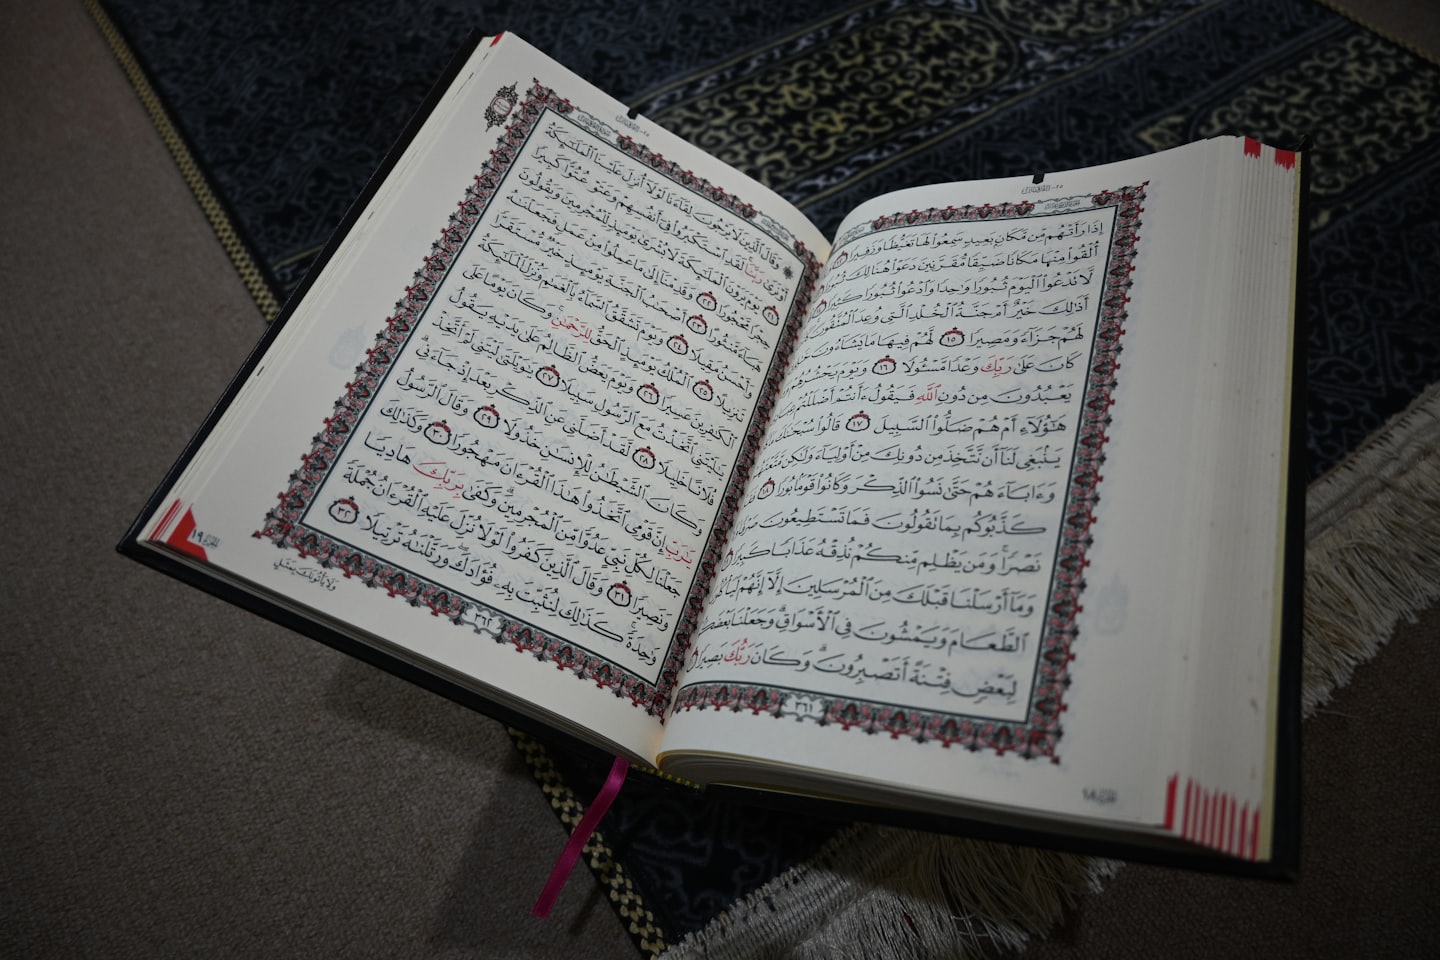 إِذَا رَأَتْهُم مِّن مَّكَانٍ بَعِيدٍ سَمِعُوا۟ لَهَا تَغَيُّظًا وَزَفِيرًا ١٢
أُلْقُوا۟ مِنْهَا مَكَانًا ضَيِّقًا مُّقَرَّنِينَ دَعَوْا۟ هُنَالِكَ ثُبُورًا
لَّا تَدْعُوا۟ ٱلْيَوْمَ ثُبُورًا وَٰحِدًا وَٱدْعُوا۟ ثُبُورًا كَثِيرًا
أَذَٰلِكَ خَيْرٌ أَمْ جَنَّةُ ٱلْخُلْدِ ٱلَّتِى وُعِدَ ٱلْمُتَّقُونَ
لَهُمْ جَزَآءً وَمَصِيرًا ١٥ لَّهُمْ فِيهَا مَا يَشَآءُونَ
كَانَ عَلَىٰ رَبِّكَ وَعْدًا مَّسْـُٔولًا ١٦ وَيَوْمَ يَحْشُرُهُمْ
يَعْبُدُونَ مِن دُونِ ٱللَّهِ فَيَقُولُ ءَأَنتُمْ أَضْلَلْتُمْ
هَٰٓؤُلَآءِ أَمْ هُمْ ضَلُّوا۟ ٱلسَّبِيلَ ١٧ قَالُوا۟ سُبْحَٰنَكَ
يَنۢبَغِى لَنَآ أَن نَّتَّخِذَ مِن دُونِكَ مِنْ أَوْلِيَآءَ وَلَٰكِن
وَءَابَآءَهُمْ حَتَّىٰ نَسُوا۟ ٱلذِّكْرَ وَكَانُوا۟ قَوْمًۢا بُورًا ١٨
كَذَّبُوكُم بِمَا تَقُولُونَ فَمَا تَسْتَطِيعُونَ
نَصْرًا ۚ وَمَن يَظْلِم مِّنكُمْ نُذِقْهُ عَذَابًا كَبِيرًا
وَمَآ أَرْسَلْنَا قَبْلَكَ مِنَ ٱلْمُرْسَلِينَ إِلَّآ إِنَّهُمْ
ٱلطَّعَامَ وَيَمْشُونَ فِى ٱلْأَسْوَاقِ ۗ وَجَعَلْنَا
لِبَعْضٍ فِتْنَةً أَتَصْبِرُونَ ۗ وَكَانَ رَبُّكَ بَصِيرًا
٣٦١
۞ وَقَالَ ٱلَّذِينَ لَا يَرْجُونَ لِقَآءَنَا لَوْلَآ أُنزِلَ عَلَيْنَا ٱلْمَلَٰٓئِكَةُ
أَوْ نَرَىٰ رَبَّنَا ۗ لَقَدِ ٱسْتَكْبَرُوا۟ فِىٓ أَنفُسِهِمْ وَعَتَوْ عُتُوًّا كَبِيرًا
٢١ يَوْمَ يَرَوْنَ ٱلْمَلَٰٓئِكَةَ لَا بُشْرَىٰ يَوْمَئِذٍ لِّلْمُجْرِمِينَ وَيَقُولُونَ
حِجْرًا مَّحْجُورًا ٢٢ وَقَدِمْنَآ إِلَىٰ مَا عَمِلُوا۟ مِنْ عَمَلٍ فَجَعَلْنَٰهُ
هَبَآءً مَّنثُورًا ٢٣ أَصْحَٰبُ ٱلْجَنَّةِ يَوْمَئِذٍ خَيْرٌ مُّسْتَقَرًّا
وَأَحْسَنُ مَقِيلًا ٢٤ وَيَوْمَ تَشَقَّقُ ٱلسَّمَآءُ بِٱلْغَمَٰمِ وَنُزِّلَ ٱلْمَلَٰٓئِكَةُ
تَنزِيلًا ٢٥ ٱلْمُلْكُ يَوْمَئِذٍ ٱلْحَقُّ لِلرَّحْمَٰنِ ۚ وَكَانَ يَوْمًا عَلَى
ٱلْكَٰفِرِينَ عَسِيرًا ٢٦ وَيَوْمَ يَعَضُّ ٱلظَّالِمُ عَلَىٰ يَدَيْهِ يَقُولُ
يَٰلَيْتَنِى ٱتَّخَذْتُ مَعَ ٱلرَّسُولِ سَبِيلًا ٢٧ يَٰوَيْلَتَىٰ لَيْتَنِى لَمْ أَتَّخِذْ
فُلَانًا خَلِيلًا ٢٨ لَّقَدْ أَضَلَّنِى عَنِ ٱلذِّكْرِ بَعْدَ إِذْ جَآءَنِى ۗ
وَكَانَ ٱلشَّيْطَٰنُ لِلْإِنسَٰنِ خَذُولًا ٢٩ وَقَالَ ٱلرَّسُولُ
يَٰرَبِّ إِنَّ قَوْمِى ٱتَّخَذُوا۟ هَٰذَا ٱلْقُرْءَانَ مَهْجُورًا ٣٠ وَكَذَٰلِكَ
جَعَلْنَا لِكُلِّ نَبِىٍّ عَدُوًّا مِّنَ ٱلْمُجْرِمِينَ ۗ وَكَفَىٰ بِرَبِّكَ هَادِيًا
وَنَصِيرًا ٣١ وَقَالَ ٱلَّذِينَ كَفَرُوا۟ لَوْلَا نُزِّلَ عَلَيْهِ ٱلْقُرْءَانُ جُمْلَةً
وَٰحِدَةً ۚ كَذَٰلِكَ لِنُثَبِّتَ بِهِۦ فُؤَادَكَ ۖ وَرَتَّلْنَٰهُ تَرْتِيلًا ٣٢
٣٦٢
وَلَا يَأْتُونَكَ بِمَثَلٍ
الجزء ١٩
الجزء ١٨